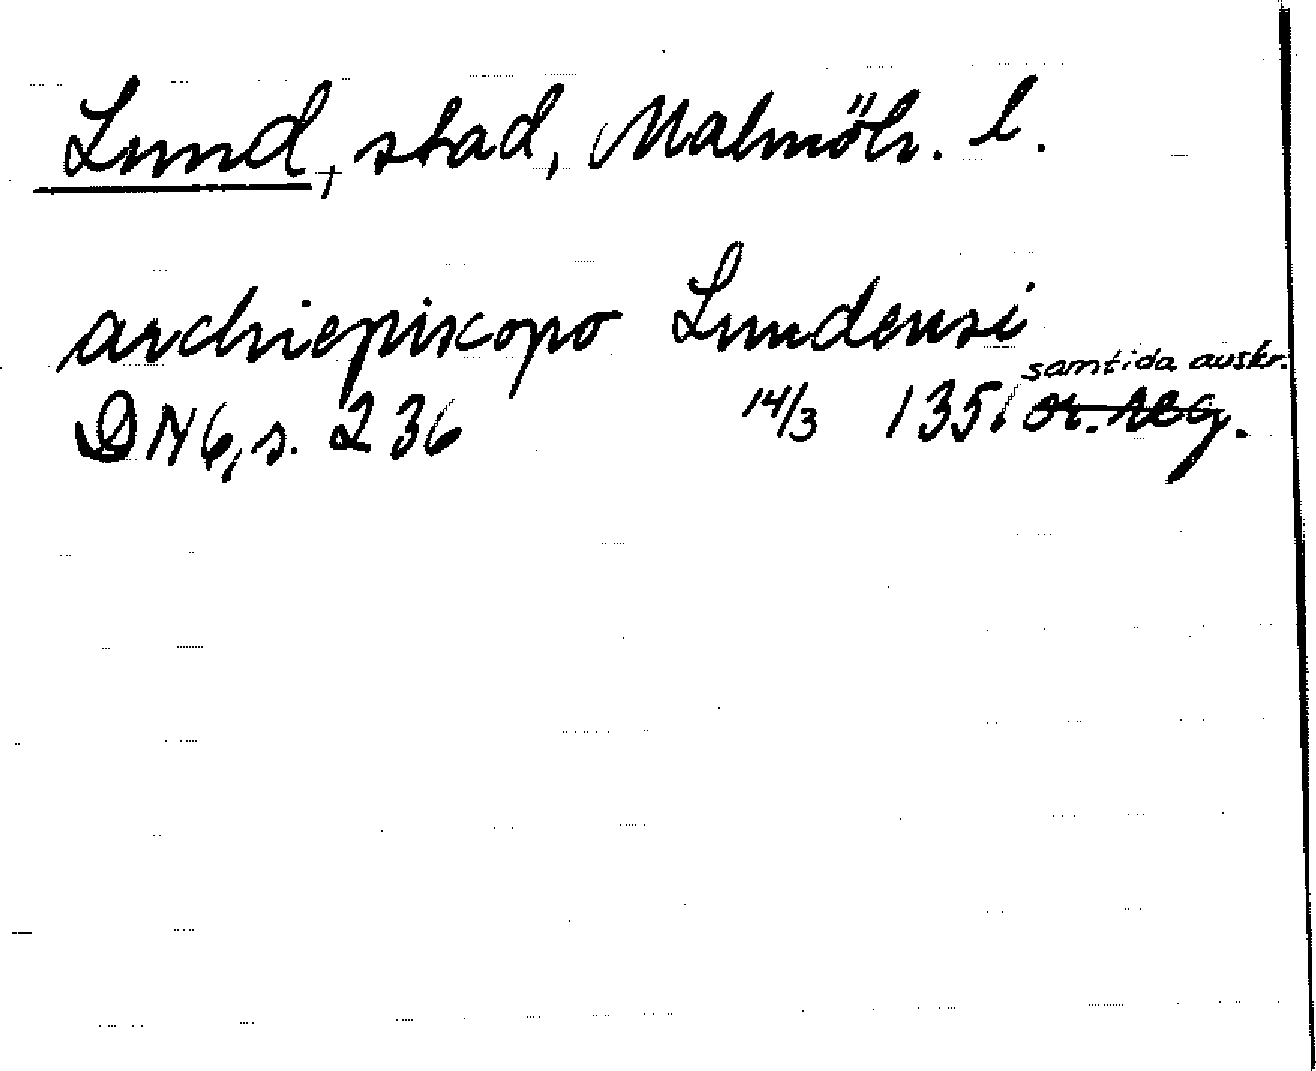 Lund, stad, Malmöh. l.
archiepiscopo Lundensi
samtida avskr.
DN 6, s. 236 14/3 1351 or. reg.